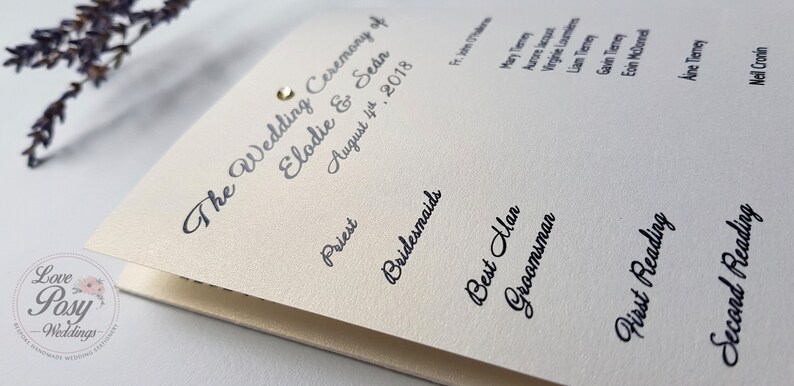 The Wedding Ceremony of
Elodie & Seán
August 4th, 2018
Priest
Fr. John O'Halloran
Bridesmaids
Mary Tierney
Aurore Jacquot
Virginie Lourmière
Best Man
Liam Tierney
Groomsman
Gavin Tierney
Eoin McDonnell
First Reading
Áine Tierney
Second Reading
Neil Cronin
Love
Posy
Weddings
BESPOKE HANDMADE WEDDING STATIONERY